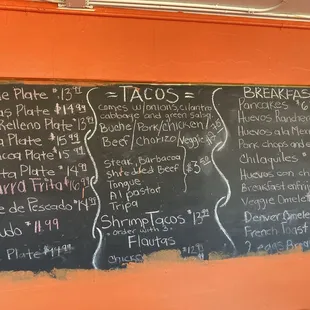 e Plate $13.99
as Plate $14.99
Relleno Plate $13.99
a Plate $15.99
acoa Plate $15.99
ita Plate $14.99
arra Frita $16.99
de Pescado $14
udo $14.99
Plate $14.99
=TACOS=
comes w/onions, cilantro
cabbage and green salsa
Buche/Pork/chicken/
Beef/chorizo Veggie
Steak, Barbacoa
shredded Beef $3
Tongue
Al pastor
Tripa
Shrimp Tacos $13
order with 3
Flautas
BREAKFAS
Pancakes $6
Huevos Ranchero
Huevos a la Mexi
Pork chops and
Chilaquiles
Huevos con
Breakfast
Veggie Omele
Denver Omele
French Toast
2 eggs